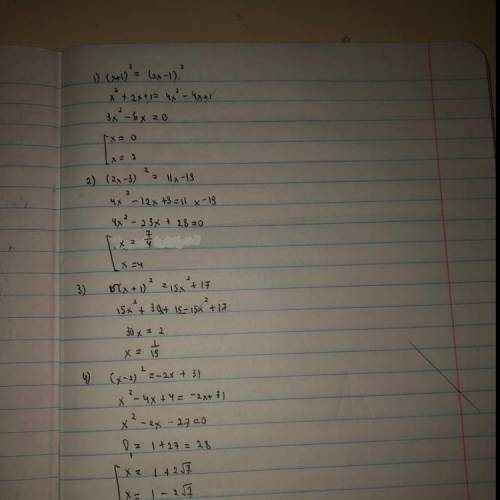 1) (x+1)² = (2x-1)²
x² + 2x+1 = 4x² - 4x+1
3x² - 6x = 0
[ x = 0
x = 2
2) (2x-3)² = 11x-19
4x² - 12x+9 = 11x-19
4x² - 23x + 28 = 0
[ x = 7/4
x = 4
3) 15(x+1)² = 15x² + 17
15x² + 30x + 15 - 15x² + 17
30x = 2
x = 1/15
4) (x-2)² = -2x + 31
x² - 4x + 4 = -2x+31
x² - 2x - 27 = 0
D₁ = 1 + 27 = 28
[ x = 1 + 2√7
x = 1 - 2√7